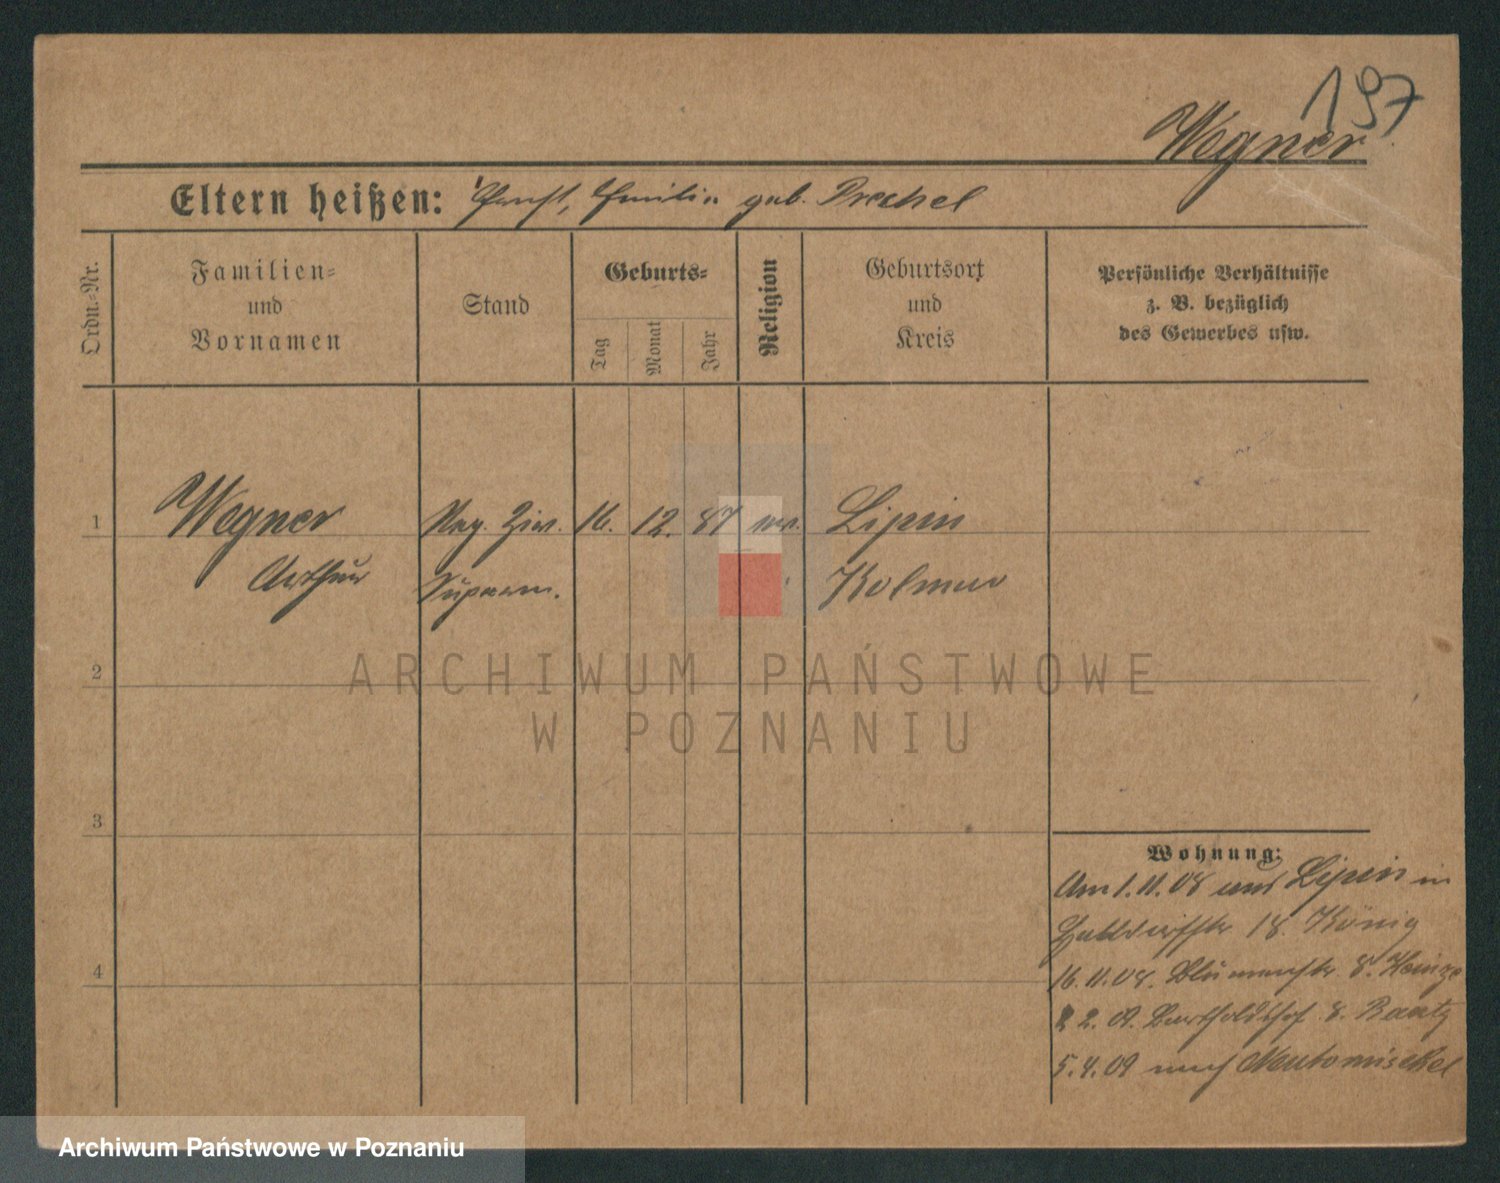 197
Wegner
Eltern heißen: Ernst, Emilie geb. Drechel
Ordn.-Nr.
Familien- und Vornamen
Stand
Geburts-
Tag
Monat
Jahr
Religion
Geburtsort und Kreis
Persönliche Verhältnisse z. B. bezüglich des Gewerbes usw.
1 Wegner Reg. Ziv. 16. 12. 87 ev. Lipin
Arthur Supern. Kolmar
2
3
4
Wohnung:
Am 1.11.08 aus Lipin in
18. König
16.11.08. Blumenstr. 8. Heinze
2. 09. Bartholdshof 8. Raatz
5.4.09 nach Neutomischel
ARCHIWUM PAŃSTWOWE
W POZNANIU
Archiwum Państwowe w Poznaniu